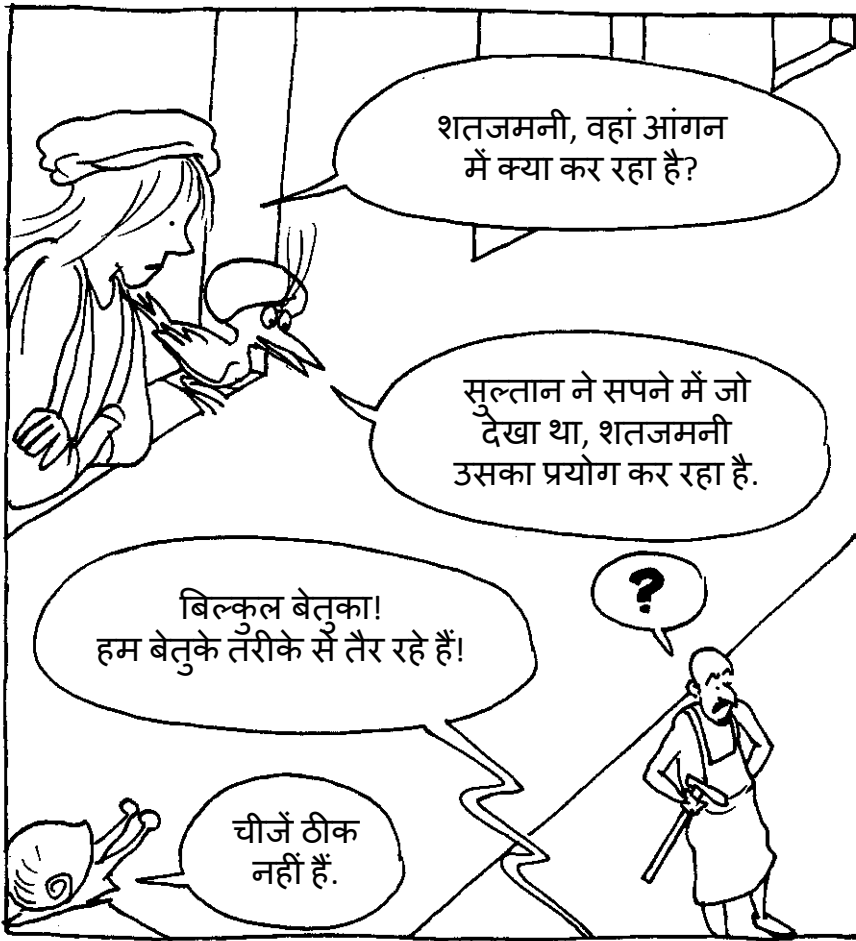 शतजमनी, वहां आंगन
में क्या कर रहा है?
सुल्तान ने सपने में जो
देखा था, शतजमनी
उसका प्रयोग कर रहा है.
?
बिल्कुल बेतुका!
हम बेतुके तरीके से तैर रहे हैं!
चीजें ठीक
नहीं हैं.